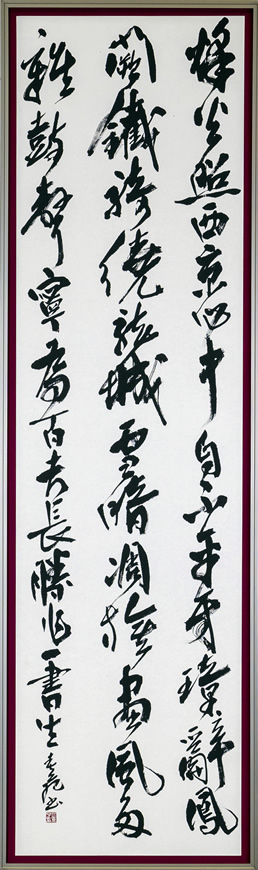 烽火照西京心中自不平牙璋辭鳳
闕鐵騎繞龍城雪暗凋旗畫風多
雜鼓聲寧為百夫長勝作一書生